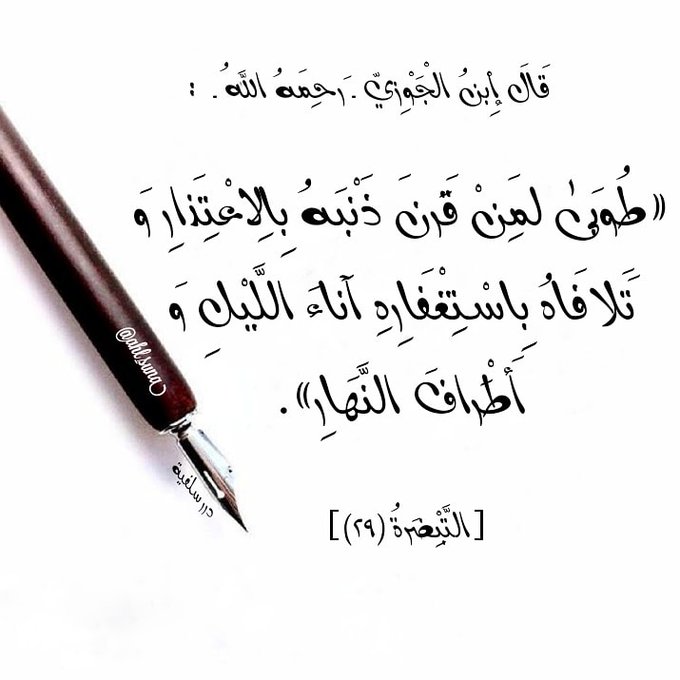 قَالَ إِبنُ الْجَوْزِيّ - رَحِمَهُ اللَّهُ - :
«طُوبَىٰ لمَِنْ قَرنَ ذَنْبَهُ بِالِاعْتِذارِ وَ
تَلافَاهُ بِاسْتِغْفَارِهِ آناءَ اللَّيْلِ وَ
أَطْرافَ النَّهَارِ».
[التَّبْصَرةُ (٢٩)]
@ahl.sunna
درر سلفية